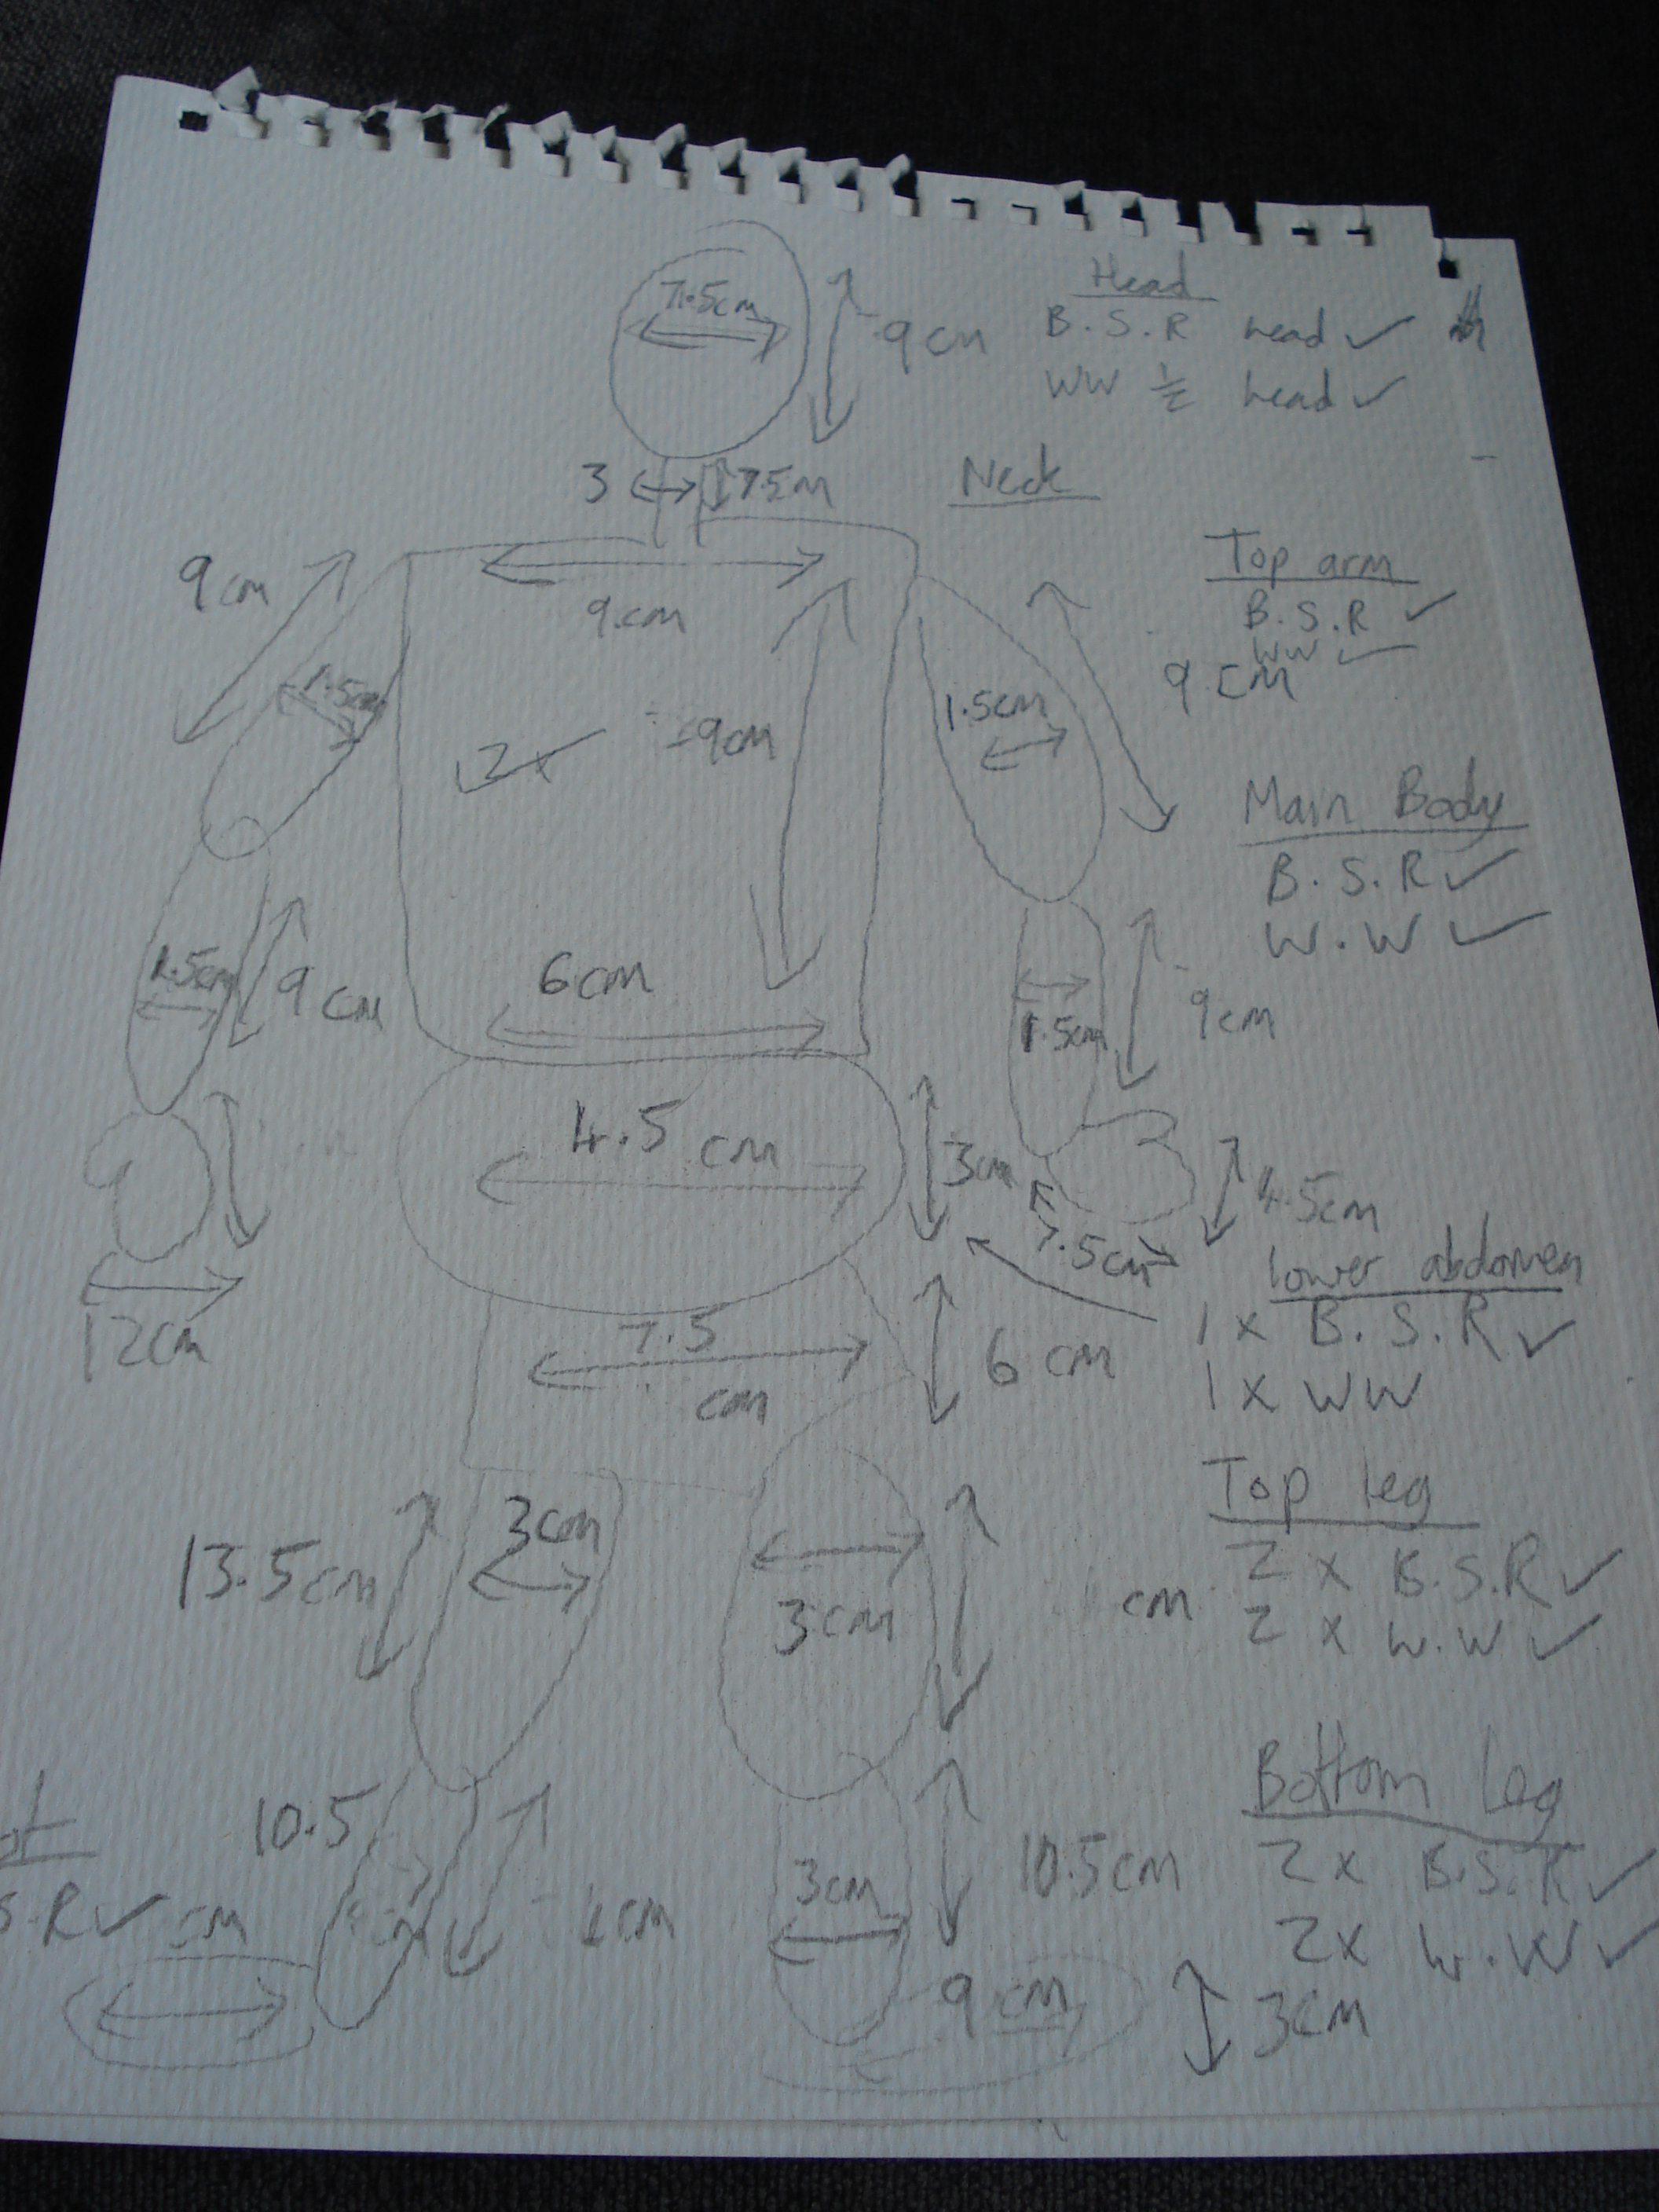 Head
7.5cm
9cm
B.S.R head ✓
WW ½ head ✓
3
Neck
9cm
9cm
Top arm
B.S.R ✓
WW ✓
9cm
1.5cm
1.5cm
2x
9cm
Main Body
B.S.R ✓
W.W ✓
6cm
1.5cm
9cm
1.5cm
9cm
4.5 cm
3cm
4.5cm
7.5cm
12cm
lower abdomen
1 x B.S.R ✓
1 x WW
7.5
cm
6 cm
Top leg
2 x B.S.R ✓
2 x W.W ✓
13.5cm
3cm
3cm
cm
Bottom leg
2x B.S.R ✓
2x W.W ✓
10.5
3cm
10.5cm
S.R ✓
cm
cm
9cm
3cm